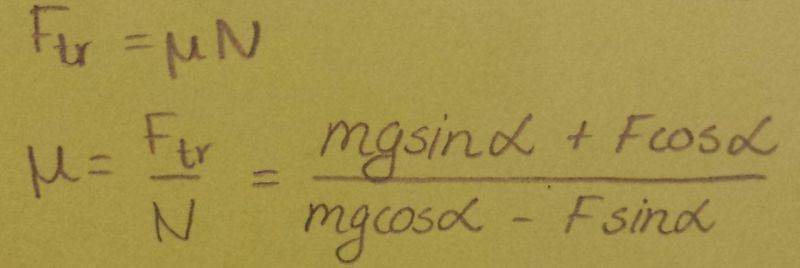 F_tr = μN
μ = F_tr / N = (mgsinα + Fcosα) / (mgcosα - Fsinα)